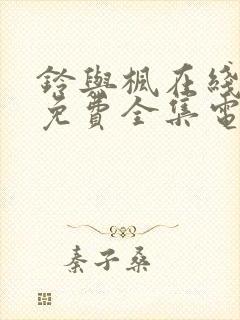 鈴與楓在綫
免費全集電
秦子桑